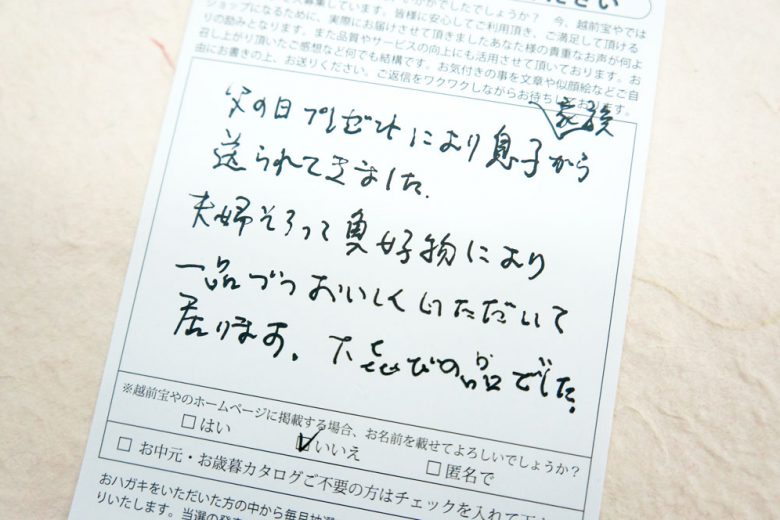 ださい
いかがでしたでしょうか？ 今、越前宝やでは
募集しています。皆様に安心してご利用頂き、ご満足して頂ける
ショップになるために、実際にお届けさせて頂きましたあなた様の貴重なお声が何よ
りの励みとなります。また品質やサービスの向上にも活用させて頂いております。お
召し上がり頂いたご感想など何でも結構です。お気付きの事を文章や似顔絵などご自
由にお書きの上、お送りください。ご返信をワクワクしながらお待ちしております。
家族
父の日プレゼントにより息子から
送られてきました.
夫婦そろって魚好物により
一品づつおいしくいただいて
居ります。大喜びの品でした。
※越前宝やのホームページに掲載する場合、お名前を載せてよろしいでしょうか？
□はい ☑いいえ □匿名で
□ お中元・お歳暮カタログご不要の方はチェックを入れて下
おハガキをいただいた方の中から毎月抽選
りいたします。当選の発